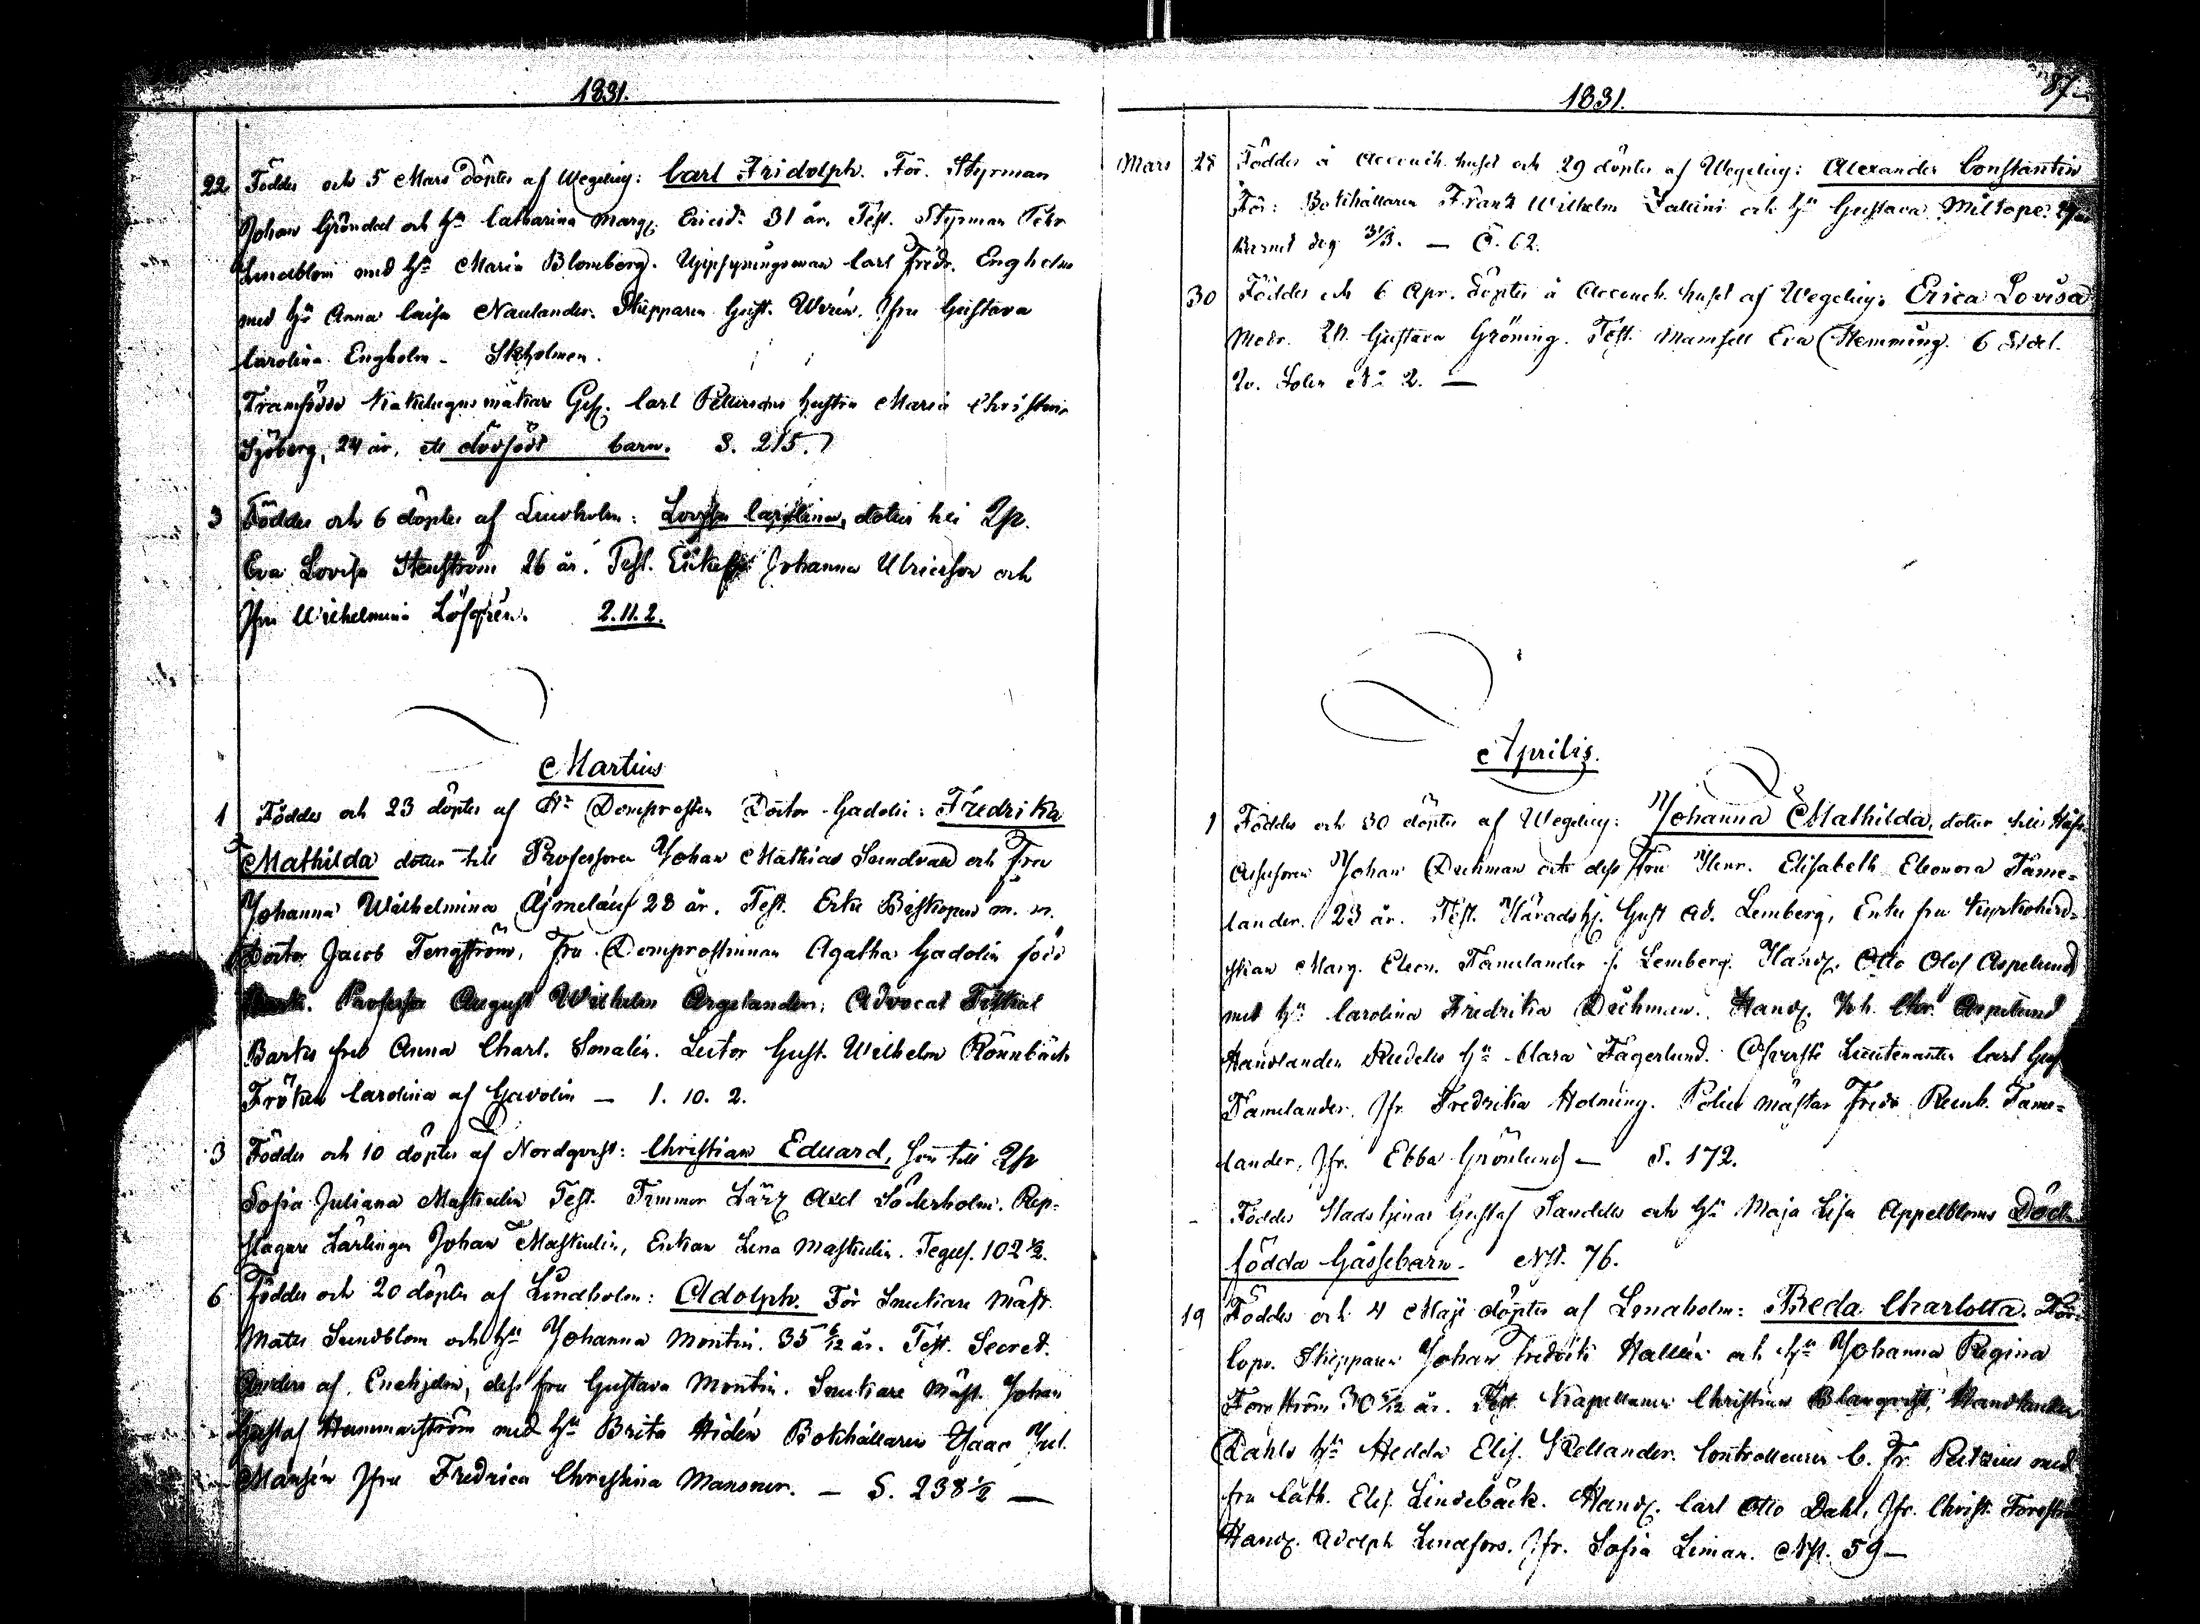 1831.
22 Föddes och 5 Mars döptes af Wegelius: Carl Fridolph. För. Styrman
Johan Gröndal och Hu Catharina Marg. Ericsd. 31 år. Test. Styrman Petr
Lindblom med Hu Maria Blomberg. Uppsyningsman Carl Fredr. Engholm
med Hu Anna Caisa Naulander. Skepparen Gust. Wirén. Jfru Gustava
Carolina Engholm - Skholmen.
Framfödde Ges. Carl Pettersons hustru Maria Christina
Sjöberg, 24 år, ett dödfödt barn. S. 215.
3 Föddes och 6 döptes af Lindholm: Lovisa Carolina, dotter till Qp.
Eva Lovisa Stenström 26 år. Test. Johanna Ulricsson och
Jfru Wilhelmina Löfgrén. 2.11.2.
Martius
1 Föddes och 23 döptes af Hr Domprosten Doctor Gadolin: Fredrika
Mathilda dotter till Professoren Johan Mathias Sundvall och Fru
Johanna Wilhelmina Ajmeläus 28 år. Test. Erke Biskopen m. m.
Doctor Jacob Tengström, Fru Domprostinnan Agatha Gadolin född
Professor August Wilhelm Argelander, Advocat Fiskal
fru Anna Charl. Lector Gust. Wilhelm Rönnbäck
Fröken Carolina af Gadolin - 1. 10. 2.
3 Föddes och 10 döptes af Nordqvist: Christian Eduard, son till Qp
Sofia Juliana Maskulin Test. Timmer Lärl. Axel Söderholm. Rep-
slagare Lärlingen Johan Maskulin, Enkan Lena Maskulin. Tegels. 102½.
6 Föddes och 20 döptes af Lindholm: Adolph. För Snickare Mäst.
Mats Sundblom och Hu Johanna Montin. 35 5/12 år. Test. Secret.
Anders af Enehjelm, dess fru Gustava Montin. Snickare Mäst. Johan
Gustaf Hammarström med Hu Brita Hidén Bokhållaren Isaac Jul.
Mansén Jfru Fredrica Christina Mansner. - S. 238½ -
1831.
87
Mars 28 Föddes å Accouch. huset och 29 döptes af Wegelius: Alexander Constantin
För: Bokhållaren Frans Wilhelm Zallini och Hu Gustava Miltope
Barnet dog 31/3. - C. 62.
30 Föddes och 6 Apr. döptes å Accouch. huset af Wegelius: Erica Lovisa
Modr. Gustava Gröning. Test. Mamsell Eva Hemming. 6
No 2. -
Aprilis.
1 Föddes och 30 döptes af Wegelius: Johanna Mathilda, dotter till
Assessoren Johan Dechman och dess Fru Henr. Elisabeth Eleonora Tame-
lander. 23 år. Test. Häradsh. Gust Ad. Lemberg, Enke fru Kyrkoherd-
skan Marg. Eleon. Tamelander f. Lemberg. Handl. Otto Olof Aspelund
med Hu Carolina Fredrika Dechman. Handl. Joh. Chr. Aspelund
Handlanden Hu Clara Fagerlund. Lieutenanten Carl Gust
Tamelander. Jfr. Fredrika Holming. Polismästar Fredr. Reinh. Tame-
lander, Jfr. Ebba Grönlund - S. 172.
- Föddes Stads tjenar Gustaf Sandells och Hu Maja Lisa Appelbloms Död-
födda Gåssebarn. Nst. 76.
19 Föddes och 4 Maji döptes af Lindholm: Beda Charlotta. För:
Copv. Skepparen Johan Fredrik Hallén och Hu Johanna Regina
Forsström 30 5/12 år. Test. Kapellanen Christian Blanqvist, Handlanden
Dahls Hu Hedda Elis. Kellander. Controlleuren C. Fr. Retzius med
fru Cath. Elis. Lindebäck. Handl. Carl Otto Dahl, Jfr. Christ. Forsström
Handl. Adolph Lindfors. Jfr. Sofia Liman. Nst. 59 -